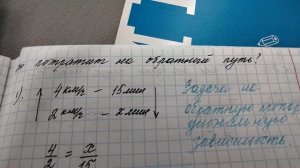 потратит на обратный путь?
4 км/ч – 15 мин
2 км/ч – х мин
Задача на
обратную пропор
циональную
зависимость.
4/2 = х/15